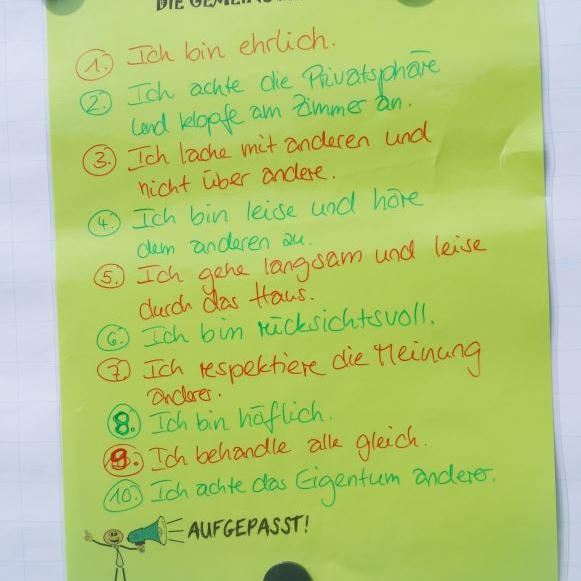 DIE
1. Ich bin ehrlich.
2. Ich achte die Privatsphäre
und klopfe am Zimmer an.
3. Ich lache mit anderen und
nicht über andere.
4. Ich bin leise und höre
dem anderen zu.
5. Ich gehe langsam und leise
durch das Haus.
6. Ich bin rücksichtsvoll.
7. Ich respektiere die Meinung
anderer.
8. Ich bin höflich.
9. Ich behandle alle gleich.
10. Ich achte das Eigentum anderer.
AUFGEPASST!